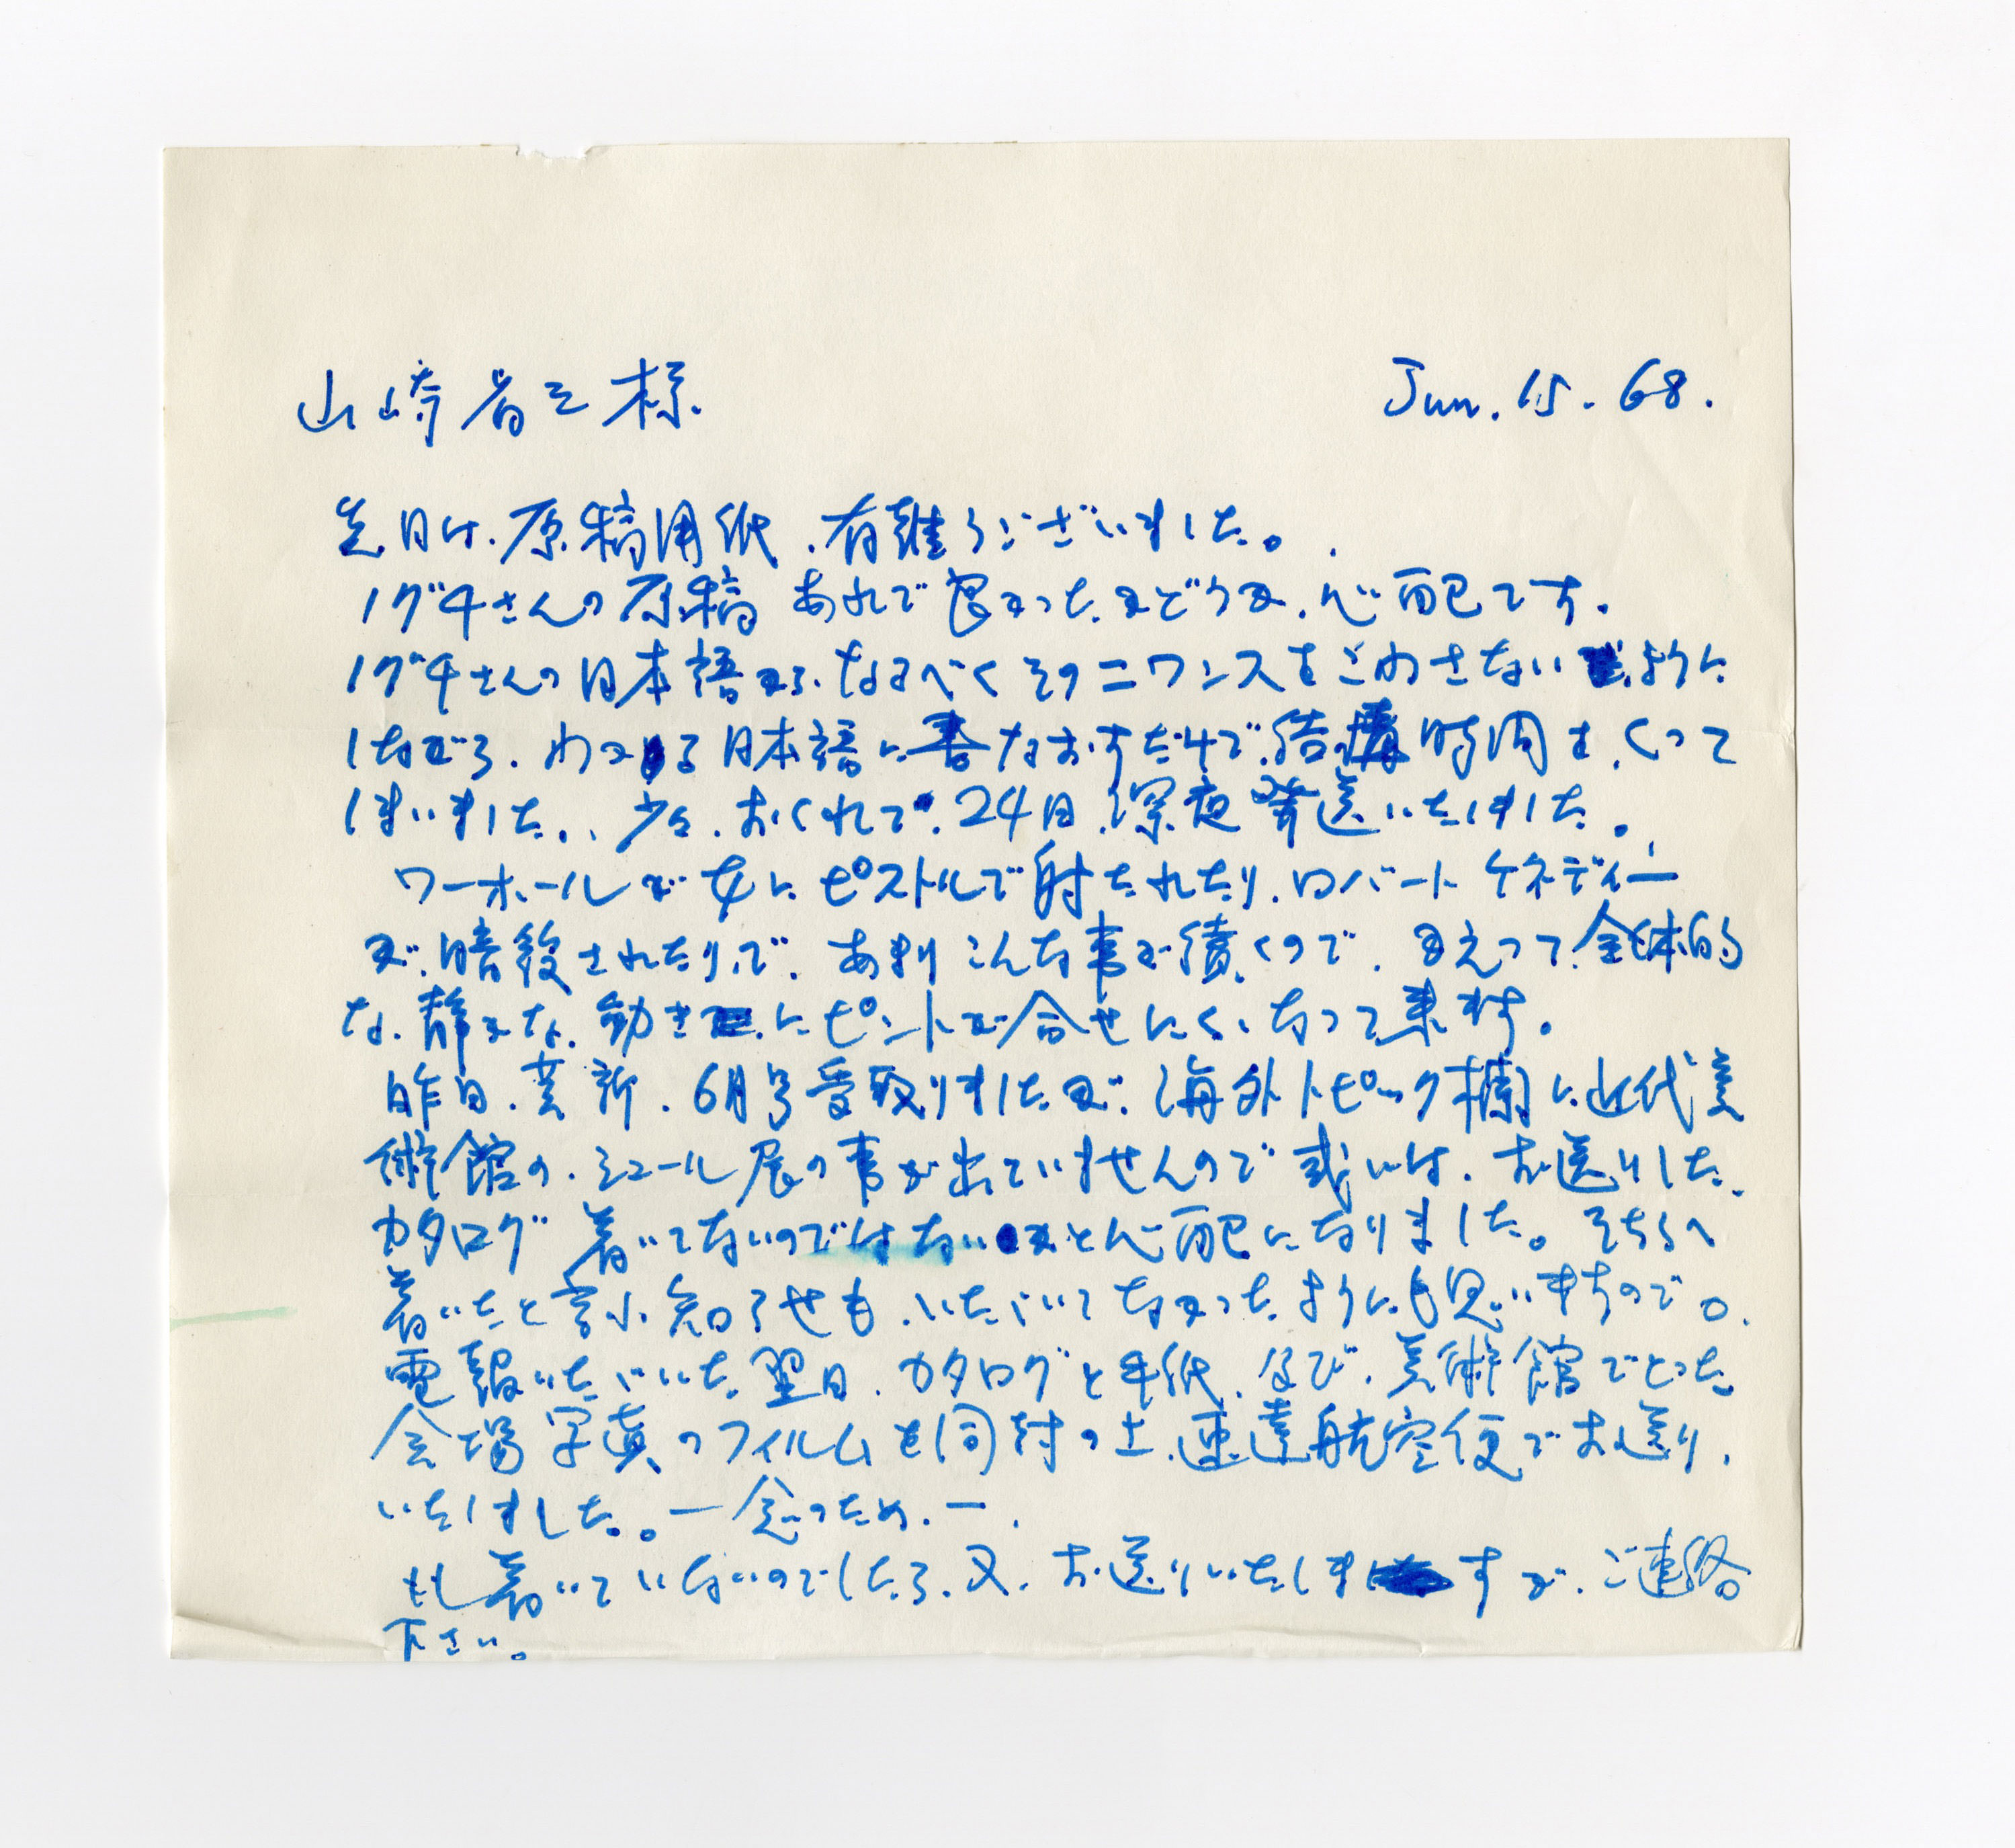 山崎省三様
Jun. 15. 68.
先日は、原稿用紙、有難うございました。
ノグチさんの原稿 あれで良かったかどうか、心配です。
ノグチさんの日本語から、なるべくそのニワンスをこわさないように
しながら、わかる日本語に書なおすだけで、結構時間を、くって
しまいました、、少々、おくれて、24日、深夜発送いたしました。
ワーホールが女にピストルで射たれたり、ロバート ケネディー
が、暗殺されたり、で、あまりこんな事が續くので、かえって、全体的
な、静かな、動きにピントが合せにくくなって来ます。
昨日、芸新、6月号受取りましたが、海外トピック欄に近代美
術館の、シュール展の事が出ていませんので或いは、お送りした、
カタログ 着いてないのではないかと心配になりました。そちらへ
着いたと言ふ知らせも、いただいてなかったようにも思いますので。
電報いただいた翌日、カタログと手紙、及び、美術館でとった
会場写真のフィルムを同封の上、速達航空便でお送り、
いたしました。。ー念のため、ー、
もし着いていないのでしたら、又、お送りいたしますが、ご連絡
下さい。